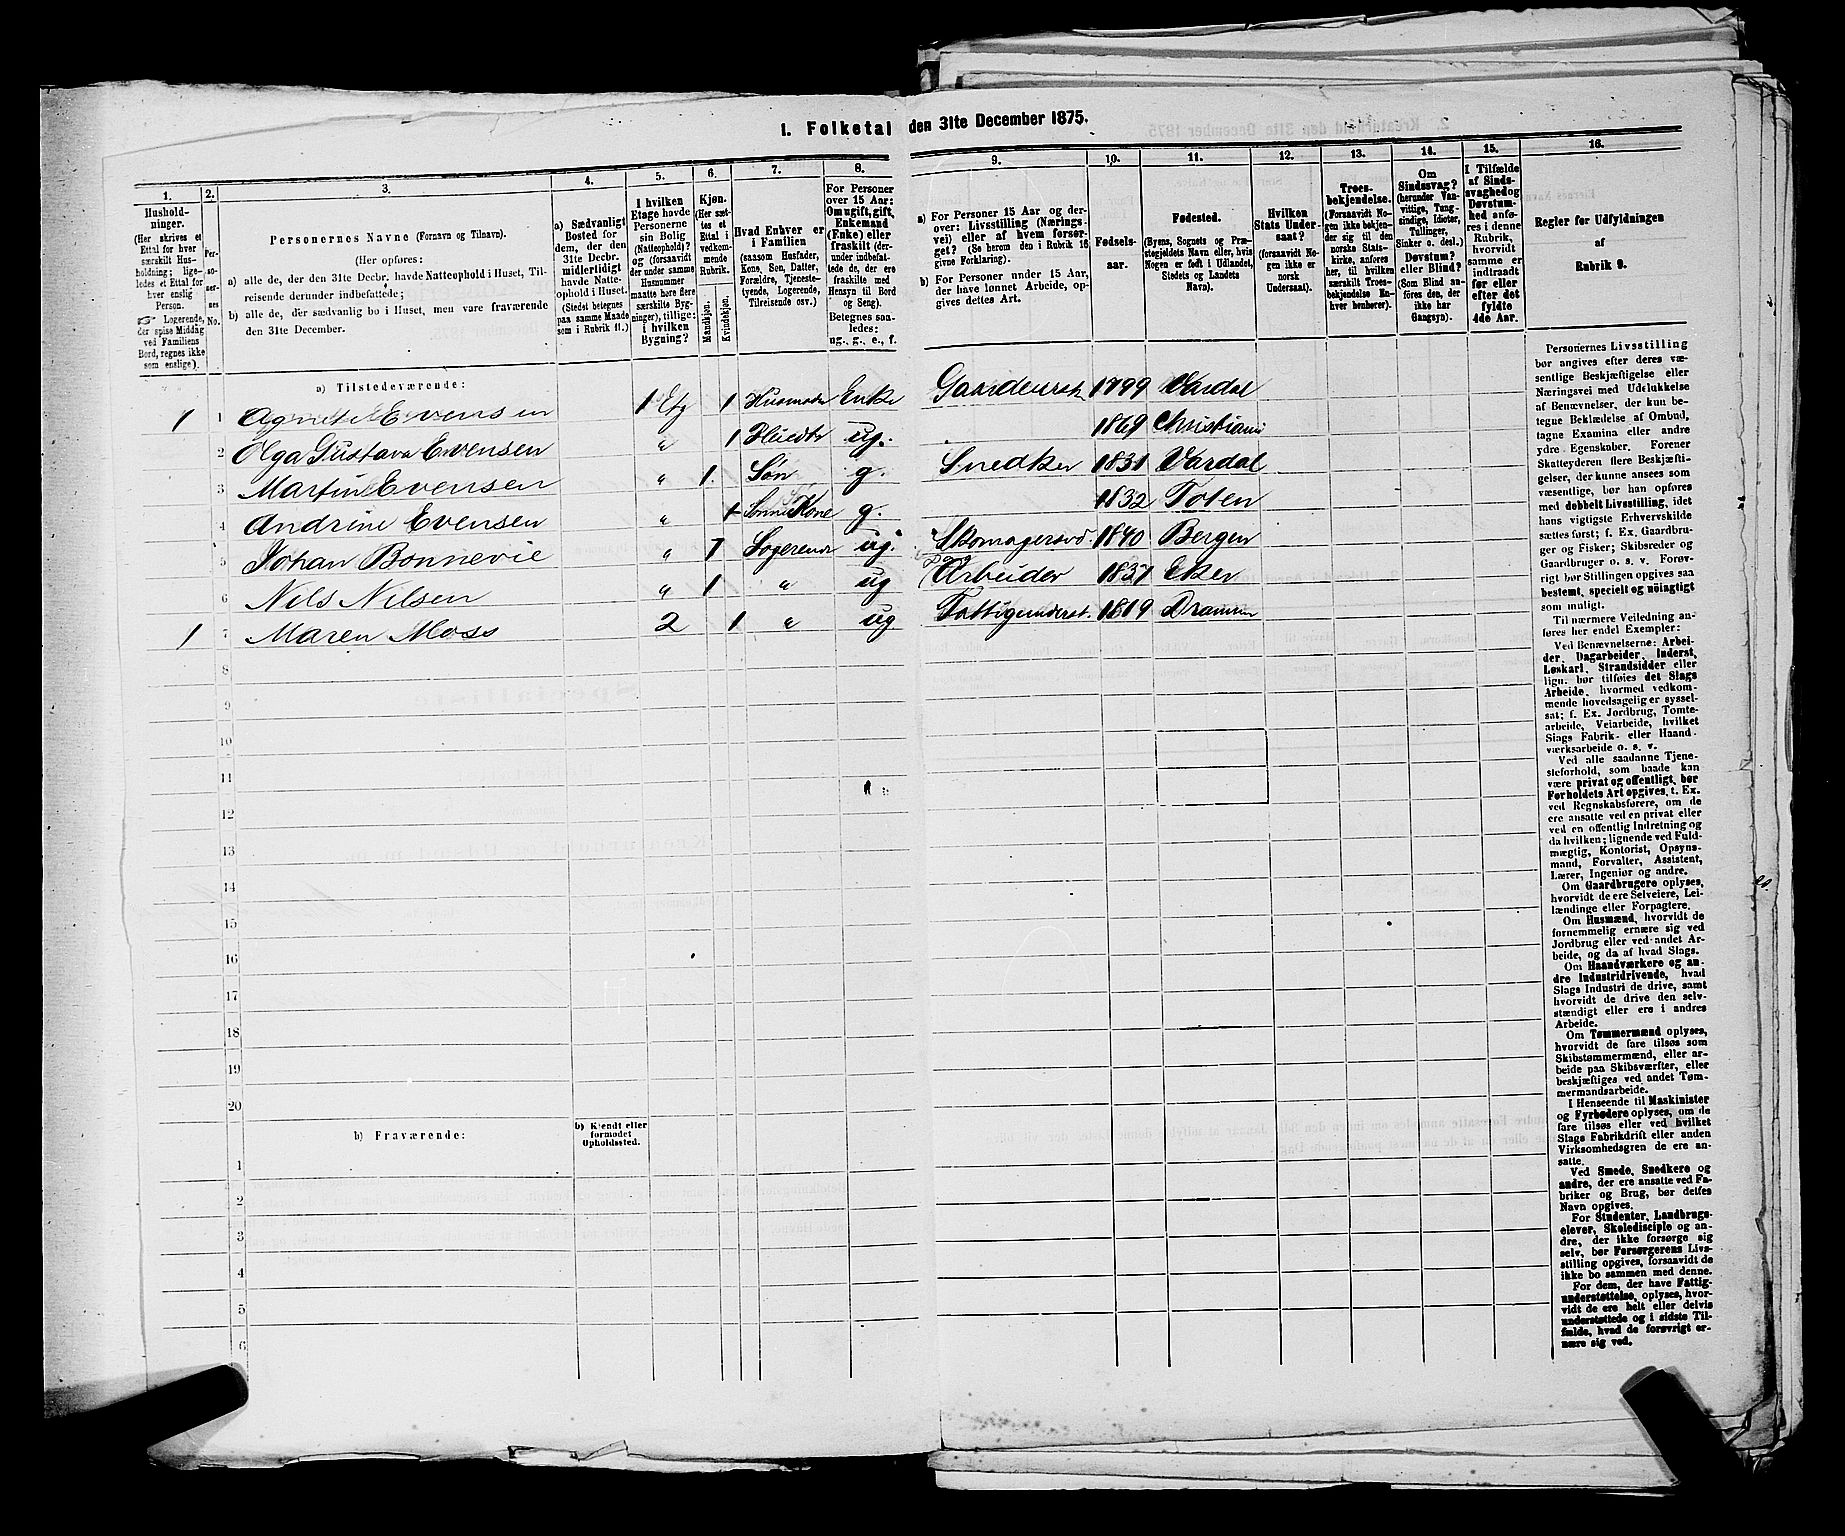 1. Folketal den 31te December 1875.
1.
Hushold-
ninger.
(Her skrives et
Ettal for hver
særskilt Hus-
holdning; lige-
ledes et Ettal for
hver enslig
Person.
Logerende,
der spise Middag
ved Familiens
Bord, regnes ikke
som enslige).
2.
Per-
so-
ner-
nes
No.
3.
Personernes Navne (Fornavn og Tilnavn).
(Her opføres:
a) alle de, der den 31te Decbr. havde Natteophold i Huset, Til-
reisende derunder indbefattede;
b) alle de, der sædvanlig bo i Huset, men vare fraværende
den 31te December.
4.
a) Sædvanligt
Bosted for
dem, der den
31te Decbr.
midlertidigt
havde Natte-
ophold i Huset.
(Stedet betegnes
paa samme Maade
som i Rubrik 11.)
5.
I hvilken
Etage havde
Personerne
sin Bolig
(Natteophold)?
og (forsaavidt
der under samme
Husnummer
maatte høre flere
særskilte Byg-
ninger), tillige:
i hvilken
Bygning?
6.
Kjøn.
(Her sæt-
tes et
Ettal i
vedkom-
mende
Rubrik.
Mandkjøn.
Kvindekjøn.
7.
Hvad Enhver er
i Familien
(saasom Husfader,
Kone, Søn, Datter,
Forældre, Tjeneste-
tyende, Logerende,
Tilreisende osv.)
8.
For Personer
over 15 Aar:
Om ugift, gift,
Enkemand
(Enke) eller
fraskilt (der-
under indbefat-
tede de, der ere
fraskilte med
Hensyn til Bord
og Seng).
Betegnes saa-
ledes:
ug., g., e., f.
9.
a) For Personer 15 Aar og der-
over: Livsstilling (Nærings-
vei) eller af hvem forsør-
get? (Se herom den i Rubrik 16
givne Forklaring).
b) For Personer under 15 Aar,
der have lønnet Arbeide, op-
gives dettes Art.
10.
Fødsels-
aar.
11.
Fødested.
(Byens, Sognets og Præ-
stegjeldets Navn eller, hvis
Nogen er født i Udlandet,
Stedets og Landets
Navn).
12.
Hvilken
Stats Under-
saat?
(forsaavidt No-
gen ikke er
norsk
Undersaat).
13.
Troes-
bekjendelse.
(Forsaavidt No-
gen ikke bekjen-
der sig til den
norske Stats-
kirke, anføres
her, til hvilken
særskilt Troes-
bekjendelse En-
hver henhører).
14.
Om
Sindssvag?
(herunder Van-
vittige, Tung-
sindige, Idioter,
Tullinger,
Sinker o. desl.)
Døvstum?
eller Blind?
(Som Blind an-
føres den, der
ikke har
Gangsyn).
15.
I Tilfælde
af Sinds-
svaghed og
Døvstum-
hed anfø-
res i denne
Rubrik,
hvorvidt
samme er
indtraadt
før eller
efter det
fyldte
4de Aar.
16.
Regler for Udfyldningen
af
Rubrik 9.
a) Tilstedeværende:
1 1 Evensen 1 Etg 1 Husmoder Enke 1799 Vardal
2 Olga Gustava Evensen " 1 ug. 1869 Christiania
3 Martin Evensen " 1. Søn g. Snedker 1831 Vardal
4 Andrine Evensen " 1 Kone g. 1832 Toten
5 Johan Bonnevie " 1 Logerende ug. 1840 Bergen
6 Nils Nilsen " 1 " ug Arbeider 1837 Eker
1 7 Maren Moss 2 1 " ug 1819 Drammen
8
9
10
11
12
13
14
15
16
17
18
19
20
b) Fraværende:
b) Kjendt eller
formodet
Opholdssted.
1
2
3
4
5
6
Personernes Livsstilling
bør angives efter deres væ-
sentlige Beskjæftigelse eller
Næringsvei med Udelukkelse
af Benævnelser, der kun be-
tegne Beklædelse af Ombud,
tagne Examina eller andre
ydre Egenskaber. Forener
Skatteyderen flere Beskjæfti-
gelser, der kunne ansees som
væsentlige, bør han opføres
med dobbelt Livsstilling, idet
hans vigtigste Erhvervskilde
sættes først; f. Ex. Gaardbru-
ger og Fisker; Skibsreder og
Gaardbruger o. s. v. Forøv-
rigt bør Stillingen opgives saa
bestemt, specielt og nøiagtigt
som muligt.
Til nærmere Veiledning an-
føres her endel Exempler:
Ved Benævnelserne: Arbei-
der, Dagarbeider, Inderst,
Løskarl, Strandsidder eller
lign. bør tilføies det Slags
Arbeide, hvormed vedkom-
mende hovedsagelig er syssel-
sat; f. Ex. Jordbrug, Tomte-
arbeide, Veiarbeide, hvilket
Slags Fabrik- eller Haand-
værksarbeide o. s. v.
Ved alle saadanne Tjene-
steforhold, som baade kan
være privat og offentligt, bør
Forholdets Art opgives, t. Ex.
ved Regnskabsførere, om de
ere ansatte ved en privat eller
ved en offentlig Indretning og
da hvilken; lignende ved Fuld-
mægtig, Kontorist, Opsyns-
mand, Forvalter, Assistent,
Lærer, Ingeniør og andre.
Om Gaardbrugere oplyses,
hvorvidt de ere Selveiere, Lei-
lændinge eller Forpagtere.
Om Husmænd, hvorvidt de
fornemmelig ernære sig ved
Jordbrug eller ved andet Ar-
beide, og da af hvad Slags.
Om Haandværkere og an-
dre Industridrivende, hvad
Slags Industri de drive, samt
hvorvidt de drive den selv-
stændigt eller ere i andres
Arbeide.
Om Tømmermænd oplyses,
hvorvidt de fare tilsøs som
Skibstømmermænd, eller ar-
beide paa Skibsværfter, eller
beskjæftiges ved andet Tøm-
mermandsarbeide.
I Henseende til Maskinister
og Fyrbødere oplyses, om de
fare tilsøs eller ved hvilket
Slags Fabrikdrift eller anden
Virksomhedsgren de ere an-
satte.
Ved Smede, Snedkere og
andre, der ere ansatte ved Fa-
briker og Brug, bør dettes
Navn opgives.
For Studenter, Landbrugs-
elever, Skoledisciple og an-
dre, der ikke forsørge sig
selv, bør Forsørgerens Livs-
stilling opgives, forsaavidt de
ikke bo sammen med denne.
For dem, der have Fattig-
understøttelse, oplyses, hvor-
vidt de ere helt eller delvis
understøttede og i sidste Til-
fælde, hvad de forøvrigt er-
nære sig ved.